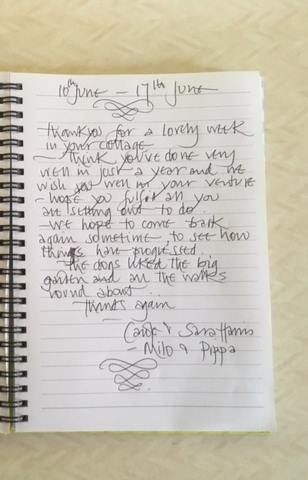 10th June – 17th June
Thankyou for a lovely week
in your cottage
– Think you've done very
well in just a year and we
wish you well in your venture
– hope you fulfil all you
are setting out to do.
– We hope to come back
again sometime to see how
things have progressed.
– The dogs liked the big
garden and all the walks
round about...
Thanks again
Carole & Sara Harris
– Milo & Pippa